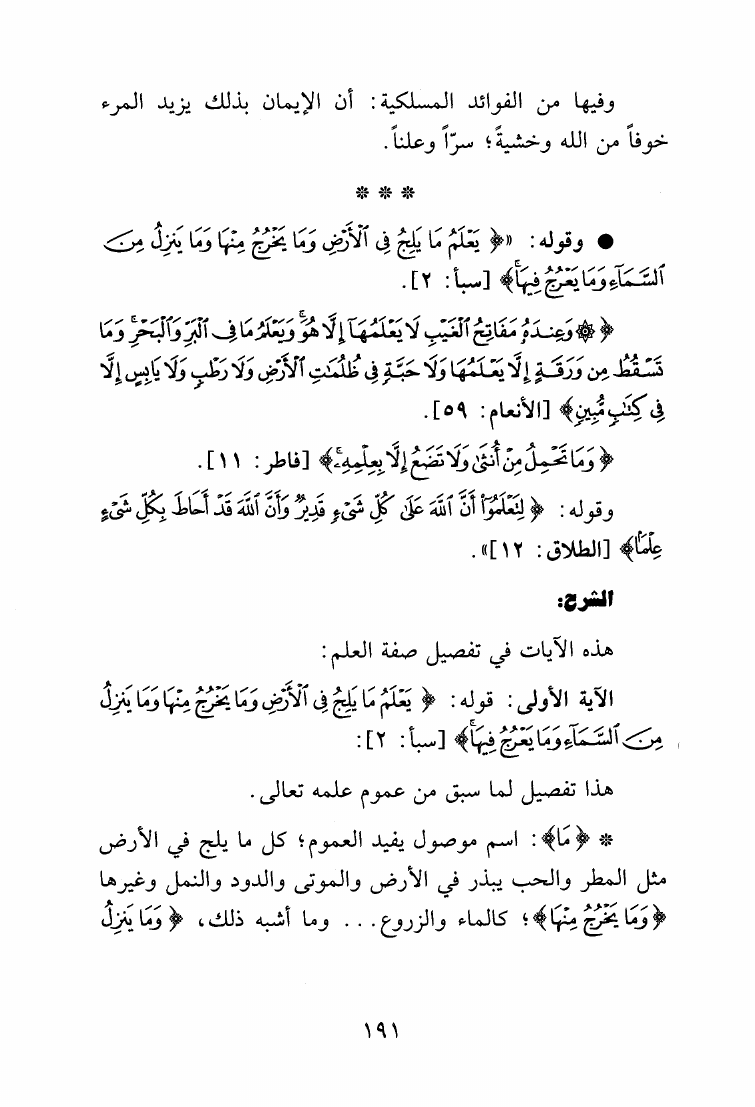 وفيها من الفوائد المسلكية: أن الإيمان بذلك يزيد المرء
خوفاً من الله وخشيةً؛ سرّاً وعلناً.
* * *
● وقوله: «﴿يَعْلَمُ مَا يَلِجُ فِي ٱلْأَرْضِ وَمَا يَخْرُجُ مِنْهَا وَمَا يَنزِلُ مِنَ
ٱلسَّمَآءِ وَمَا يَعْرُجُ فِيهَاۚ﴾ [سبأ: ٢].
﴿۞ وَعِندَهُۥ مَفَاتِحُ ٱلْغَيْبِ لَا يَعْلَمُهَآ إِلَّا هُوَۚ وَيَعْلَمُ مَا فِى ٱلْبَرِّ وَٱلْبَحْرِۚ وَمَا
تَسْقُطُ مِن وَرَقَةٍ إِلَّا يَعْلَمُهَا وَلَا حَبَّةٍ فِى ظُلُمَٰتِ ٱلْأَرْضِ وَلَا رَطْبٍ وَلَا يَابِسٍ إِلَّا
فِى كِتَٰبٍ مُّبِينٍ﴾ [الأنعام: ٥٩].
﴿وَمَا تَحْمِلُ مِنْ أُنثَىٰ وَلَا تَضَعُ إِلَّا بِعِلْمِهِۦۚ﴾ [فاطر: ١١].
وقوله: ﴿لِتَعْلَمُوٓا۟ أَنَّ ٱللَّهَ عَلَىٰ كُلِّ شَىْءٍ قَدِيرٌ وَأَنَّ ٱللَّهَ قَدْ أَحَاطَ بِكُلِّ شَىْءٍ
عِلْمًۢا﴾ [الطلاق: ١٢]».
الشرح:
هذه الآيات في تفصيل صفة العلم:
الآية الأولى: قوله: ﴿يَعْلَمُ مَا يَلِجُ فِى ٱلْأَرْضِ وَمَا يَخْرُجُ مِنْهَا وَمَا يَنزِلُ
مِنَ ٱلسَّمَآءِ وَمَا يَعْرُجُ فِيهَاۚ﴾ [سبأ: ٢]:
هذا تفصيل لما سبق من عموم علمه تعالى.
* ﴿مَا﴾: اسم موصول يفيد العموم؛ كل ما يلج في الأرض
مثل المطر والحب يبذر في الأرض والموتى والدود والنمل وغيرها
﴿وَمَا يَخْرُجُ مِنْهَا﴾؛ كالماء والزروع... وما أشبه ذلك، ﴿وَمَا يَنزِلُ
١٩١